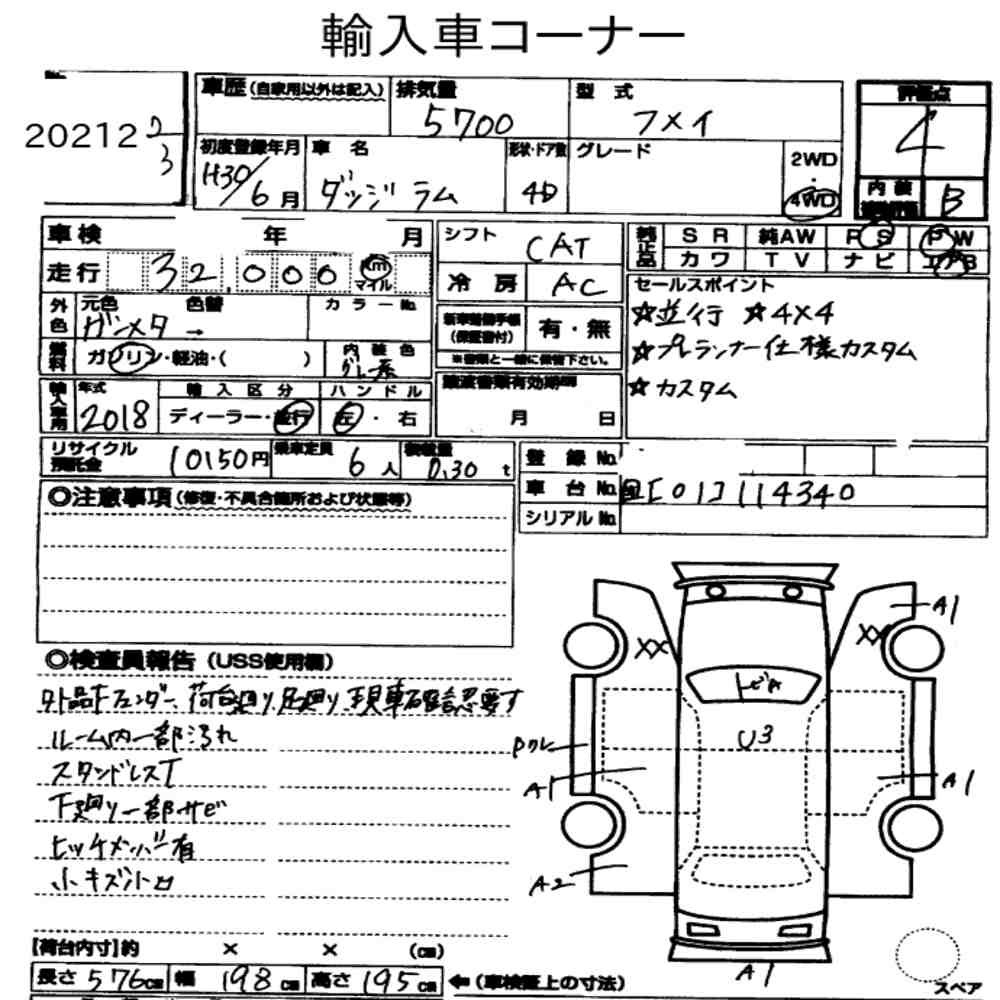 輸入車コーナー
20212 2/3
車歴 (自家用以外は記入)
排気量
5700
型 式
フメイ
評価点
4
初度登録年月
H30/6月
車 名
ダッジ ラム
形状・ドア数
4D
グレード
2WD
・
4WD
内 装
B
車検 年 月
シフト
CAT
純正品 SR 純AW PS PW
カワ TV ナビ エアB
走行 32,000 km マイル
冷 房
AC
セールスポイント
☆並行 ☆4×4
☆プレランナー仕様カスタム
☆カスタム
外色 元色 色替 カラーNo.
ガンメタ →
新車整備手帳
(保証書付)
有・無
※書類と一緒に保管下さい。
燃料 ガソリン・軽油・( )
内 装 色
グレー系
譲渡書類有効期限
月 日
輸入車用 年式
2018
輸 入 区 分
ディーラー・並行
ハ ン ド ル
左・右
リサイクル
預託金
10150円
乗車定員
6人
積載量
0.30 t
登 録 No.
車 台 No.
国[01]114340
シリアル No.
◎注意事項 (修復・不具合箇所および状態等)
◎検査員報告 (USS使用欄)
外品Fフェンダー、荷台廻り、足廻り、現車確認要す
ルーム内一部汚れ
スタンドレスT
下廻り一部サビ
ヒッチメンバー有
小キズ小凹
A1
XX
XX
トビA
U3
Pワレ
A1
A1
A2
A1
スペア
【荷台内寸】約 × × (cm)
長さ 576cm 幅 198cm 高さ 195cm ←(車検証上の寸法)